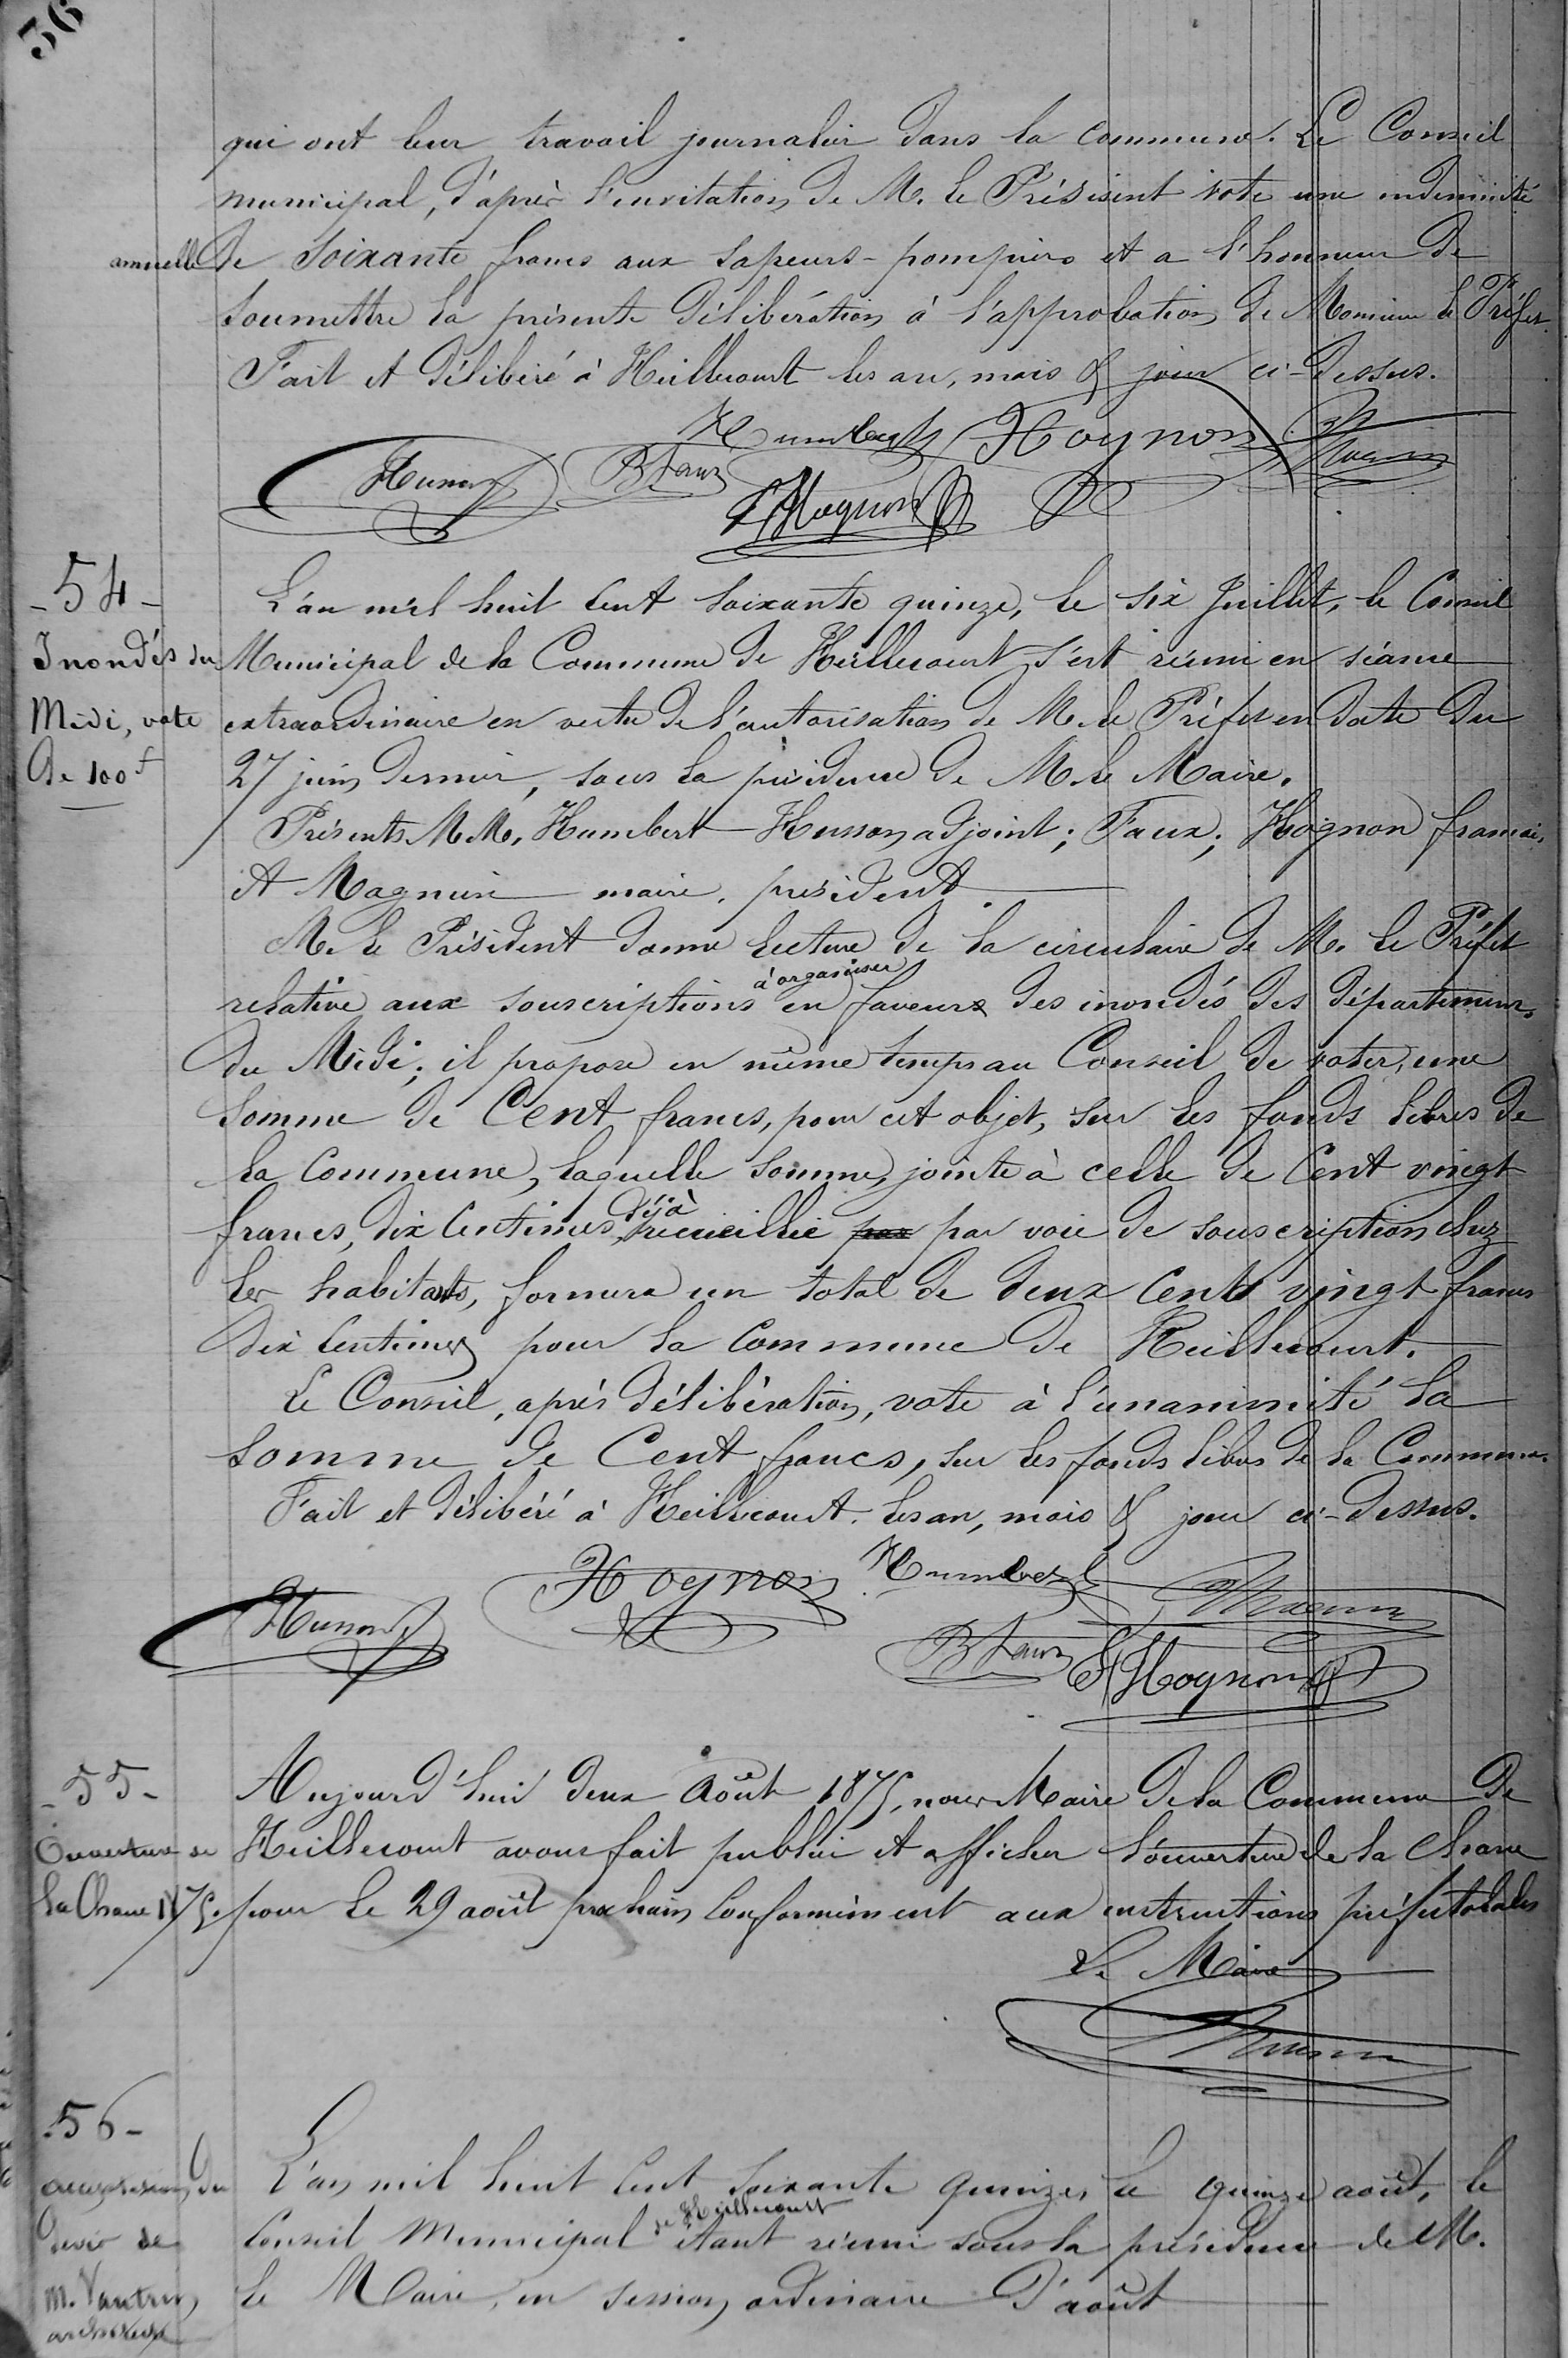 36
qui ont leur travail journalier dans la commune. Le Conseil
municipal, d'après l'invitation de M. le Président vote une indemnité
annuelle de soixante francs aux sapeurs-pompiers et a l'honneur de
soumettre la présente délibération à l'approbation de Monsieur le Préfet.
Fait et délibéré à Heillecourt les an, mois & jour ci-dessus.
Humbert Hognon
Husson B Faux
F Hognon
- 54 -
Inondés du
Midi, vote
de 100 f
L'an mil huit cent soixante quinze, le six Juillet, le Conseil
Municipal de la Commune de Heillecourt s'est réuni en séance
extraordinaire en vertu de l'autorisation de M. le Préfet en date du
27 juin dernier, sous la présidence de M. le Maire.
Présents M.M. Humbert Husson adjoint; Faux; Hognon françois,
et Magnien maire, président.
M. le Président donne lecture de la circulaire de M. le Préfet
relative aux souscriptions à organiser en faveurs des inondés des départements
du Midi; il propose en même temps au Conseil de voter, une
somme de Cent francs, pour cet objet, sur les fonds libres de
la Commune, laquelle somme, jointe à celle de Cent vingt
francs, dix centimes, déjà recueillie par par voie de souscription chez
les habitants, formera un total de deux cent vingt francs
dix centimes pour la Commune de Heillecourt.
Le Conseil, après délibération, vote à l'unanimité la
somme de Cent francs, sur les fonds libres de la Commune.
Fait et délibéré à Heillecourt. les an, mois & jour ci-dessus.
Hognon Humbert
Husson
B Faux F Hognon
- 55 -
Ouverture de
la Chasse 1875.
Aujourd'hui deux Août 1875, nous Maire de la Commune de
Heillecourt avons fait publier et afficher l'ouverture de la chasse
pour le 29 août prochain conformément aux instructions préfectorales
Le Maire
- 56 -
du
devis de
M. Vautrin,
architecte
L'an mil huit cent soixante quinze, le quinze août, le
Conseil Municipal de Heillecourt étant réuni sous la présidence de M.
le Maire, en session ordinaire d'août